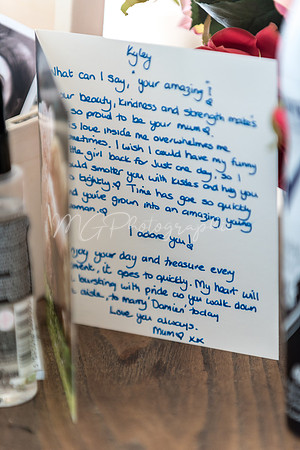 Kyley
hat can I say, "your amazing"!
ur beauty, kindness and strength makes
so proud to be your mum
s love inside me overwhelmes me
metimes. I wish I could have my funny
le girl back for just one day, so I
ould smoter you with kisses and hug you
tightly. Time has gone so quickly
nd you've grown into an amazing young
oman.
I adore you!
joy your day and treasure every
ment, it goes to quickly. My heart will
bursting with pride as you walk down
aisle, to marry 'Damien' today
Love you always.
Mum xx
MGPhotography